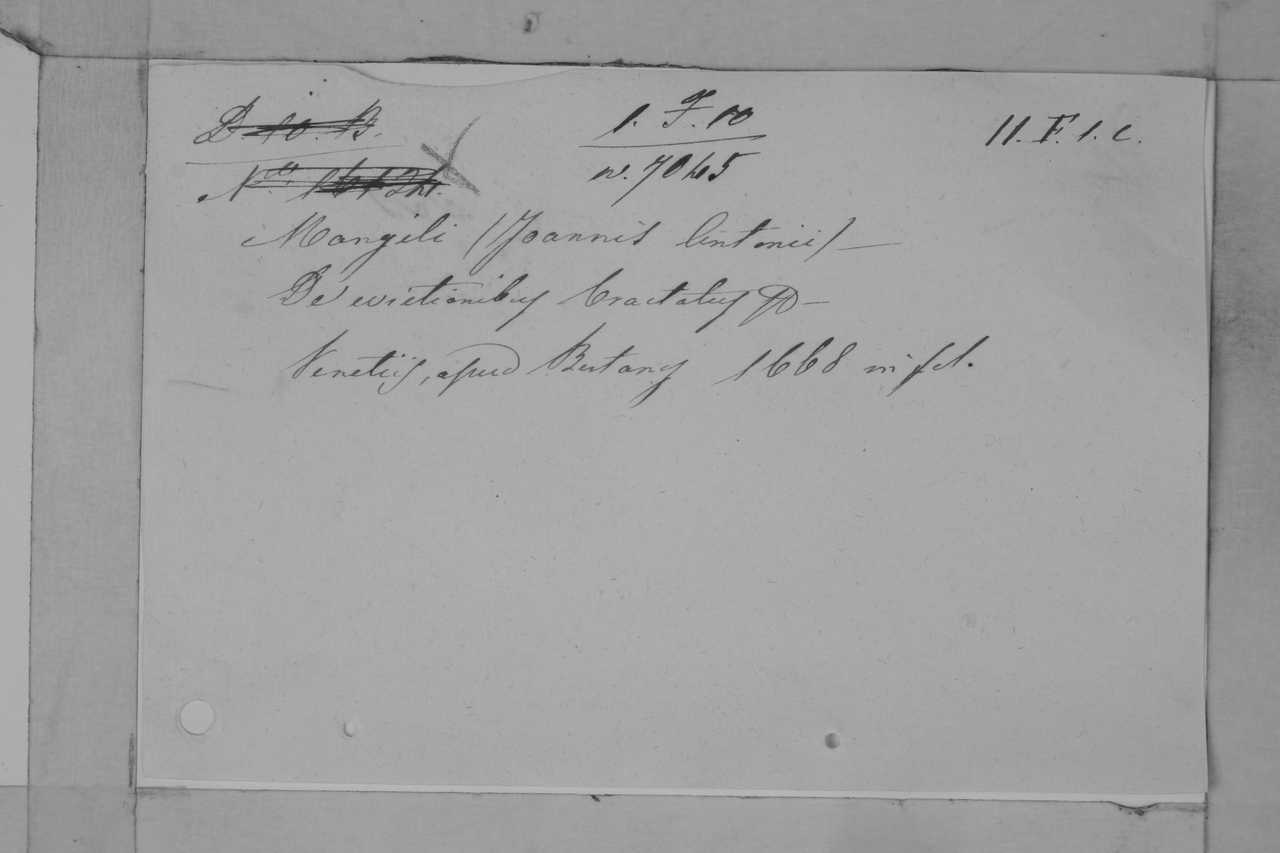 D. 10. B.
1. F. 10
11. F. 1. c.
n. 7045
Mangili (Joannis Antonii) —
De evictionibus Tractatus &c —
Venetiis, apud Bertanos 1668 in fol.